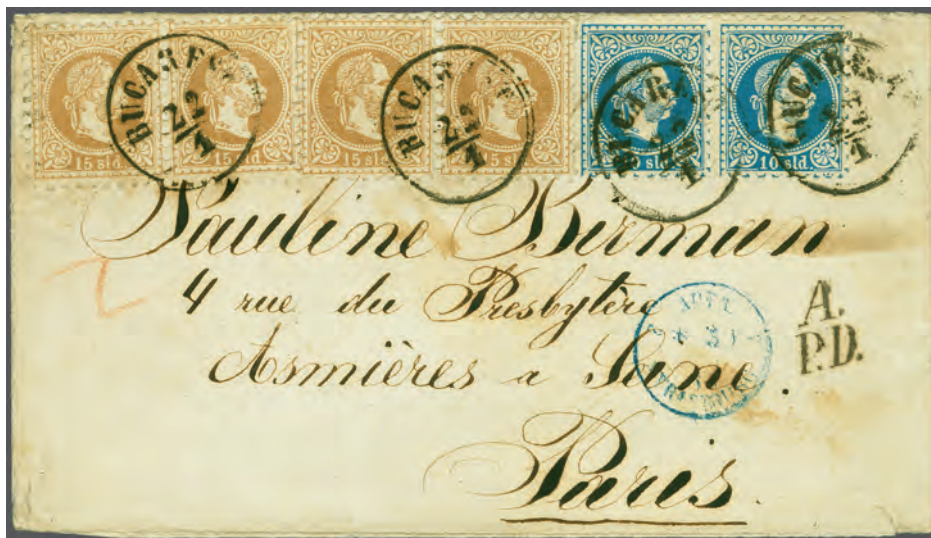 15 sld.
15 sld.
15 sld.
15 sld.
10 sld.
BUCAREST
22/1
BUCAREST
22/1
BUCAREST
BUCAREST
Pauline Birman
4 rue du Presbytère
Asmières a Sane
Paris
A.
P.D.
2